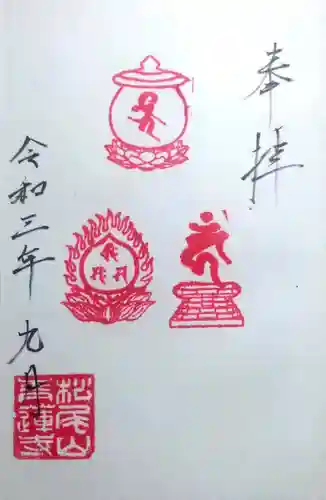 奉拝
令和三年九月
松尾山
青蓮寺